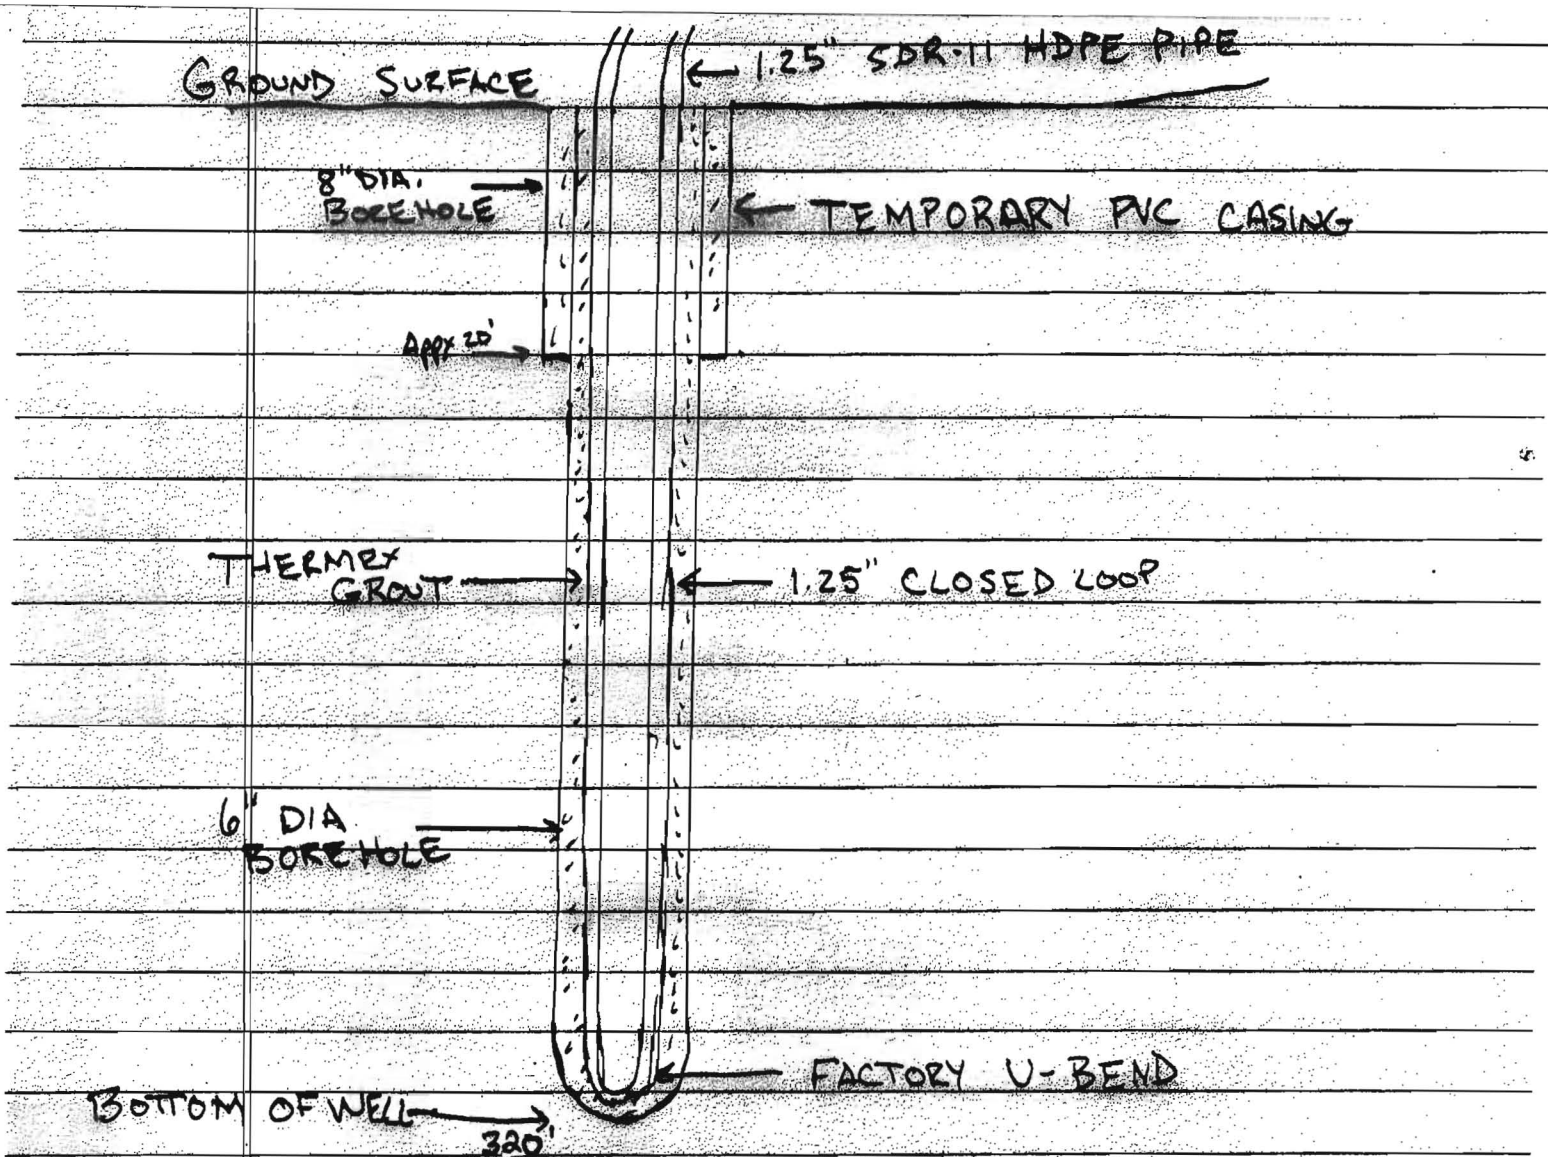 GROUND SURFACE
1.25" SDR-11 HDPE PIPE
8" DIA.
BOREHOLE
TEMPORARY PVC CASING
Appx 20'
THERMEX
GROUT
1.25" CLOSED LOOP
6" DIA
BOREHOLE
FACTORY U-BEND
BOTTOM OF WELL
320'